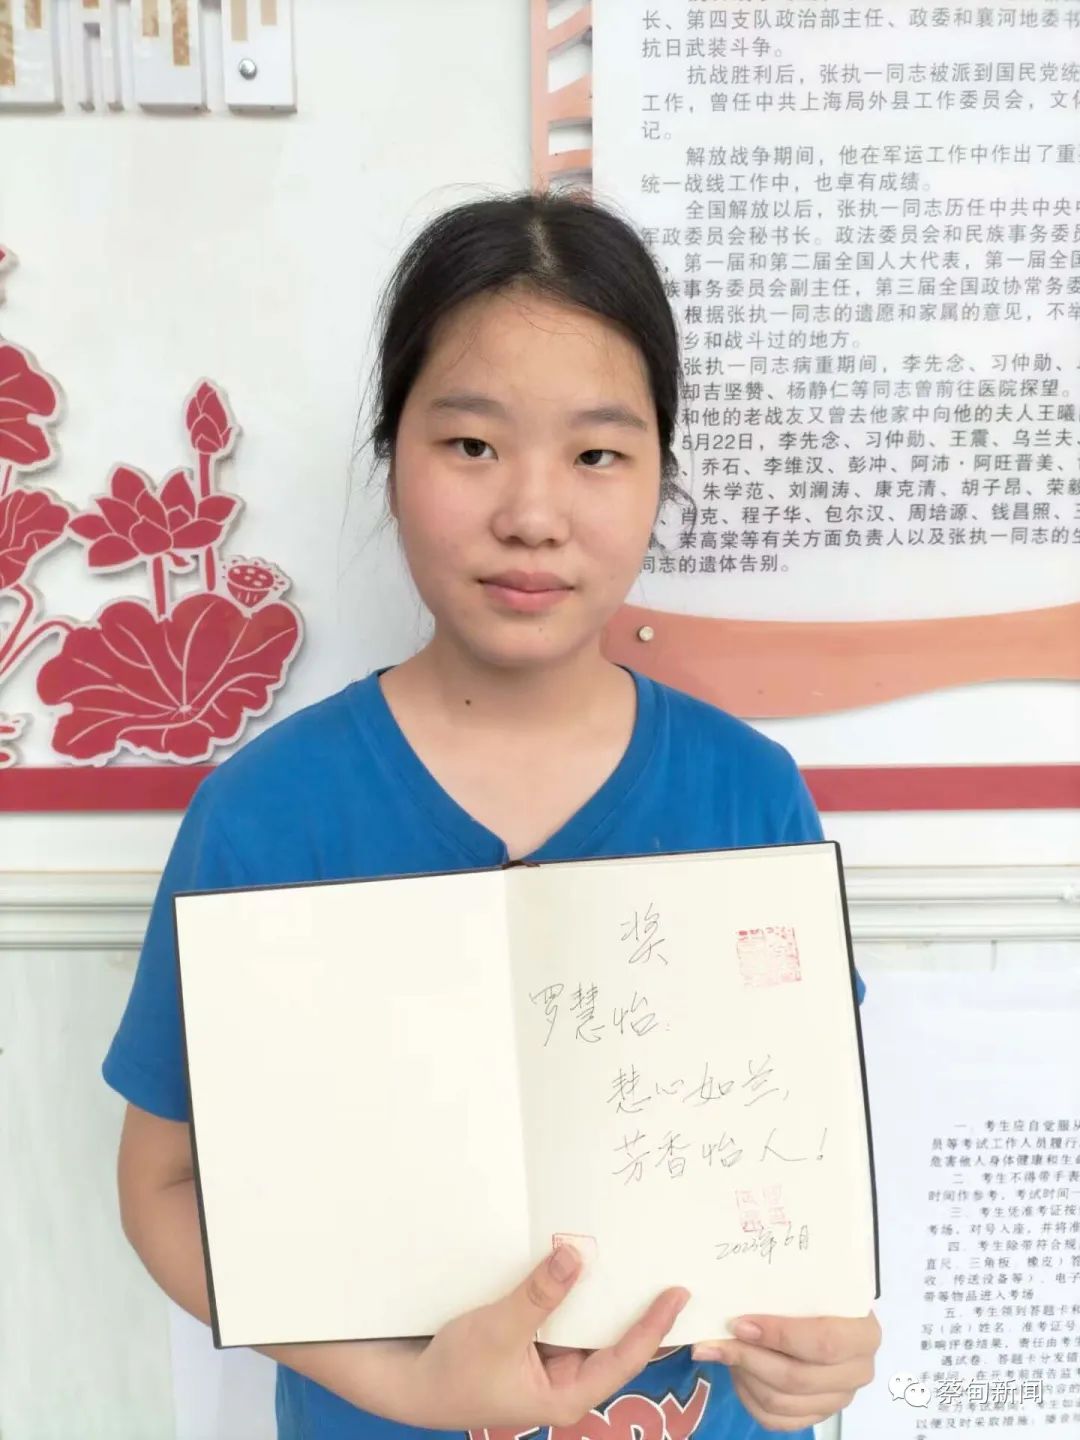 长、第四支队政治部主任、政委和襄河地委书
抗日武装斗争。
抗战胜利后，张执一同志被派到国民党统
工作，曾任中共上海局外县工作委员会，文化
记。
解放战争期间，他在军运工作中作出了重
统一战线工作中，也卓有成绩。
全国解放以后，张执一同志历任中共中央中
军政委员会秘书长。政法委员会和民族事务委员
，第一届和第二届全国人大代表，第一届全国
族事务委员会副主任，第三届全国政协常务委
根据张执一同志的遗愿和家属的意见，不举
乡和战斗过的地方。
张执一同志病重期间，李先念、习仲勋、
却吉坚赞、杨静仁等同志曾前往医院探望。
和他的老战友又曾去他家中向他的夫人王曦
5月22日，李先念、习仲勋、王震、乌兰夫、
、乔石、李维汉、彭冲、阿沛·阿旺晋美、
朱学范、刘澜涛、康克清、胡子昂、荣毅
、肖克、程子华、包尔汉、周培源、钱昌照、
、荣高棠等有关方面负责人以及张执一同志的生
同志的遗体告别。
奖
罗慧怡：
慧心如兰，
芳香怡人！
2023年6月
一．考生应自觉服从
员等考试工作人员履行
危害他人身体健康和生命
二．考生不得带手表
时间作参考，考试时间一
三．考生凭准考证按
考场，对号入座，并将准
四．考生除带符合规
直尺．三角板．橡皮）答
收．传送设备等）、电子
带等物品进入考场
五．考生领到答题卡和
写（涂）姓名．准考证号
影响评卷结果，责任由考生
遇试卷．答题卡分发错
手询问，在开考前报告监考
内容的
以便及时采取措施；
蔡甸新闻